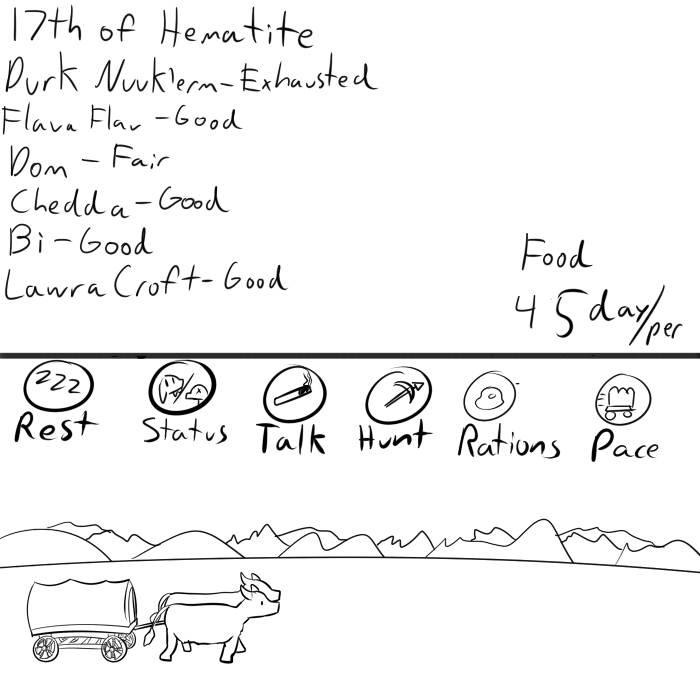 17th of Hematite
Durk Nuuk'erm-Exhausted
Flava Flav -Good
Dom - Fair
Chedda - Good
Bi - Good
Lawra Croft- Good
Food
45 day/per
zzz
Rest
Status
Talk
Hunt
Rations
Pace